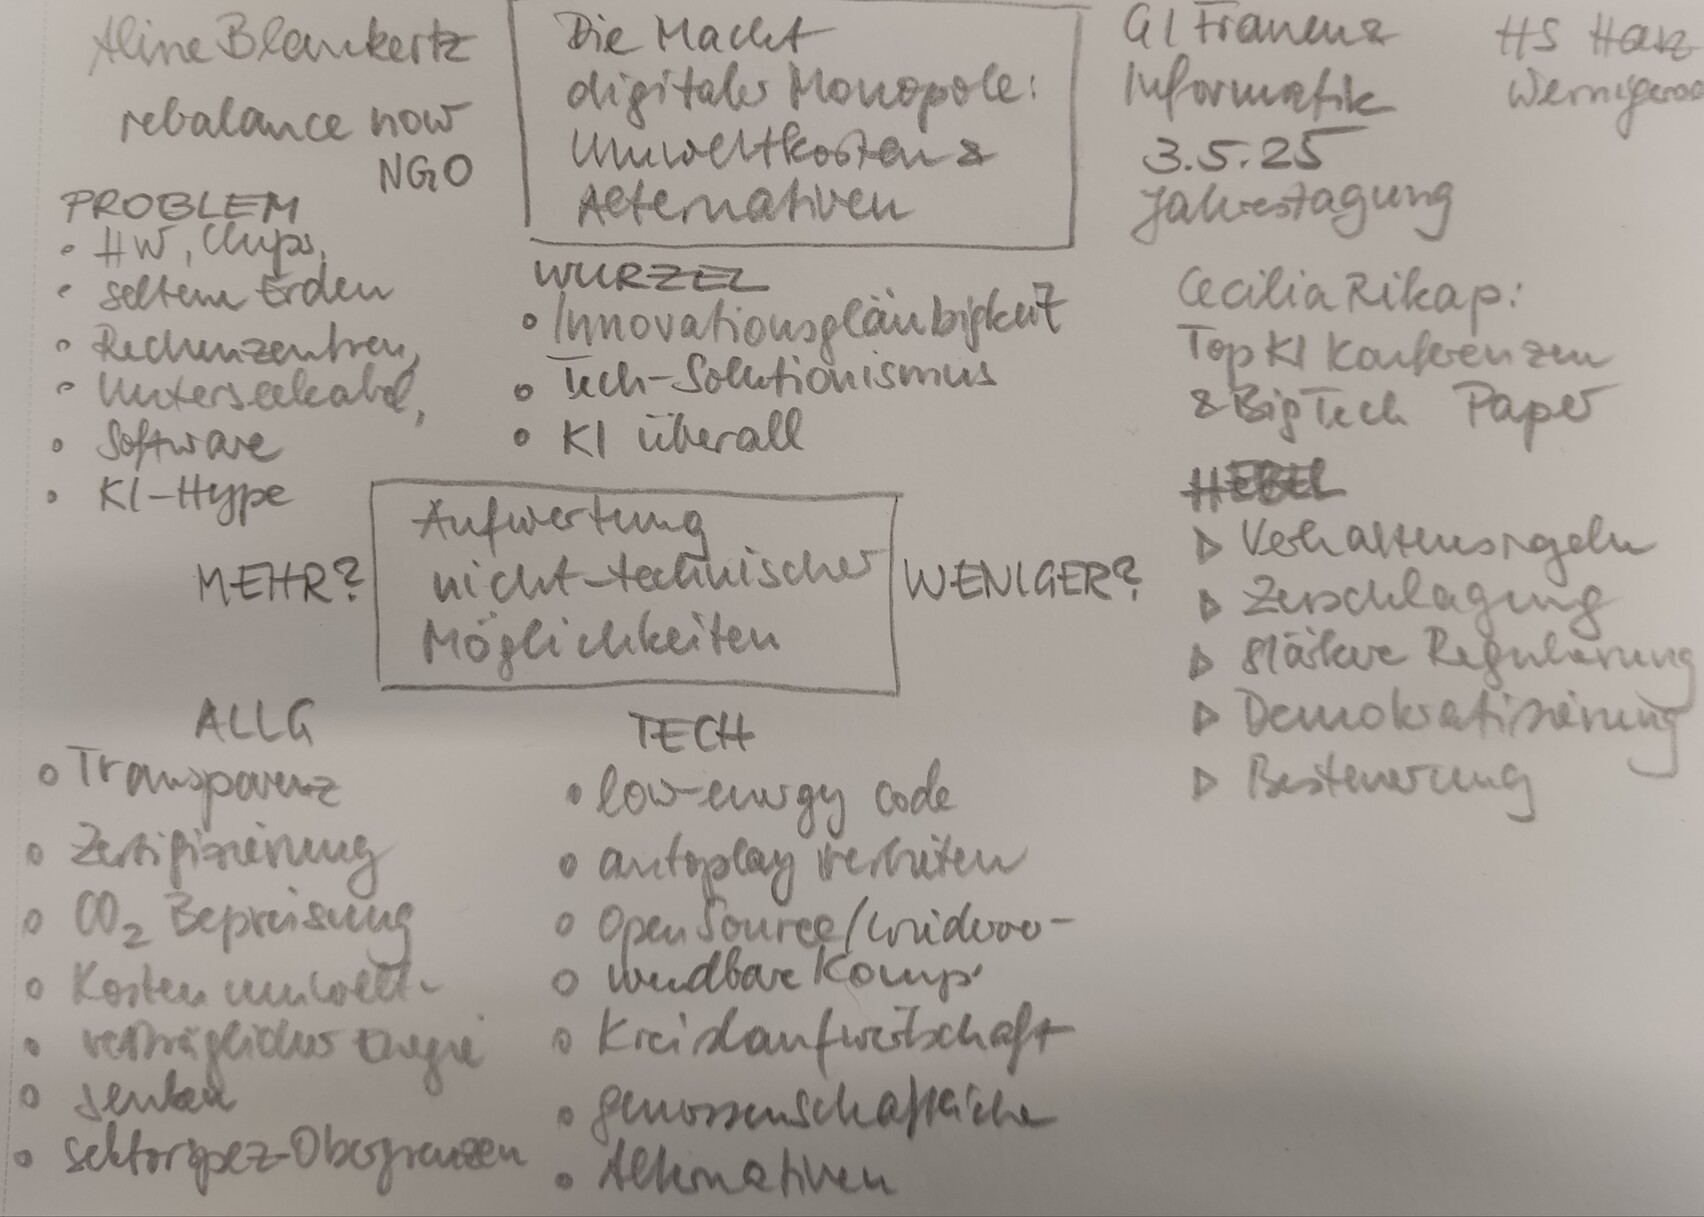 Aline Blankertz
rebalance now
NGO
Die Macht
digitaler Monopole:
Umweltkosten &
Alternativen
GI Frauen &
Informatik
3.5.25
Jahrestagung
HS Harz
Wernigerod
PROBLEM
• HW, Chips,
• seltene Erden
• Rechenzentren,
• Unterseekabel,
• Software
• KI-Hype
WURZEL
• Innovationsgläubigkeit
• Tech-Solutionismus
• KI überall
Cecilia Rikap:
Top KI Konferenzen
& BigTech Paper
HEBEL
▷ Verhaltensregeln
▷ Zerschlagung
▷ stärkere Regulierung
▷ Demokratisierung
▷ Besteuerung
MEHR?
Aufwertung
nicht-technischer
Möglichkeiten
WENIGER?
ALLG
• Transparenz
• Zertifizierung
• CO₂ Bepreisung
• Kosten umwelt-
• verträglicher Energie
• senken
• sektorspez-Obergrenzen
TECH
• low-energy code
• autoplay verbieten
• Open Source/wiederver-
• wendbare Komp.
• Kreislaufwirtschaft
• genossenschaftliche
• Alternativen